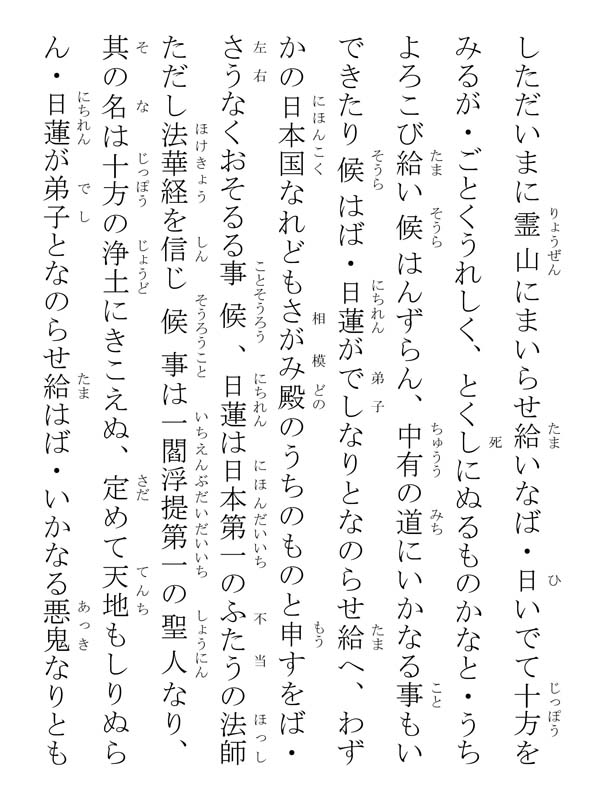 しただいまに霊山にまいらせ給いなば・日いでて十方を
みるが・ごとくうれしく、とくしにぬるものかなと・うち
よろこび給い候はんずらん、中有の道にいかなる事もい
できたり候はば・日蓮がでしなりとなのらせ給へ、わず
かの日本国なれどもさがみ殿のうちのものと申すをば・
さうなくおそるる事候、日蓮は日本第一のふたうの法師
ただし法華経を信じ候事は一閻浮提第一の聖人なり、
其の名は十方の浄土にきこえぬ、定めて天地もしりぬら
ん・日蓮が弟子となのらせ給はば・いかなる悪鬼なりとも